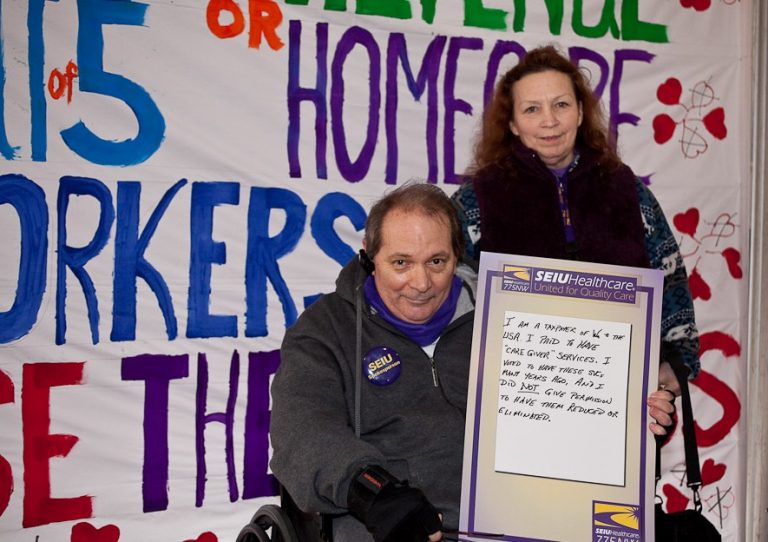 OR
HOMECARE
of 5
WORKERS
THE
SEIU Healthcare
775NW
SEIUHealthcare®
United for Quality Care
I AM A TAXPAYER OF WA & THE
USA. I PAID TO HAVE
"CARE GIVER" SERVICES. I
VOTED TO HAVE THESE SVCS
MANY YEARS AGO, AND I
DID NOT GIVE PERMISSION
TO HAVE THEM REDUCED OR
ELIMINATED.
SEIU
SEIUHealthcare®
775NW